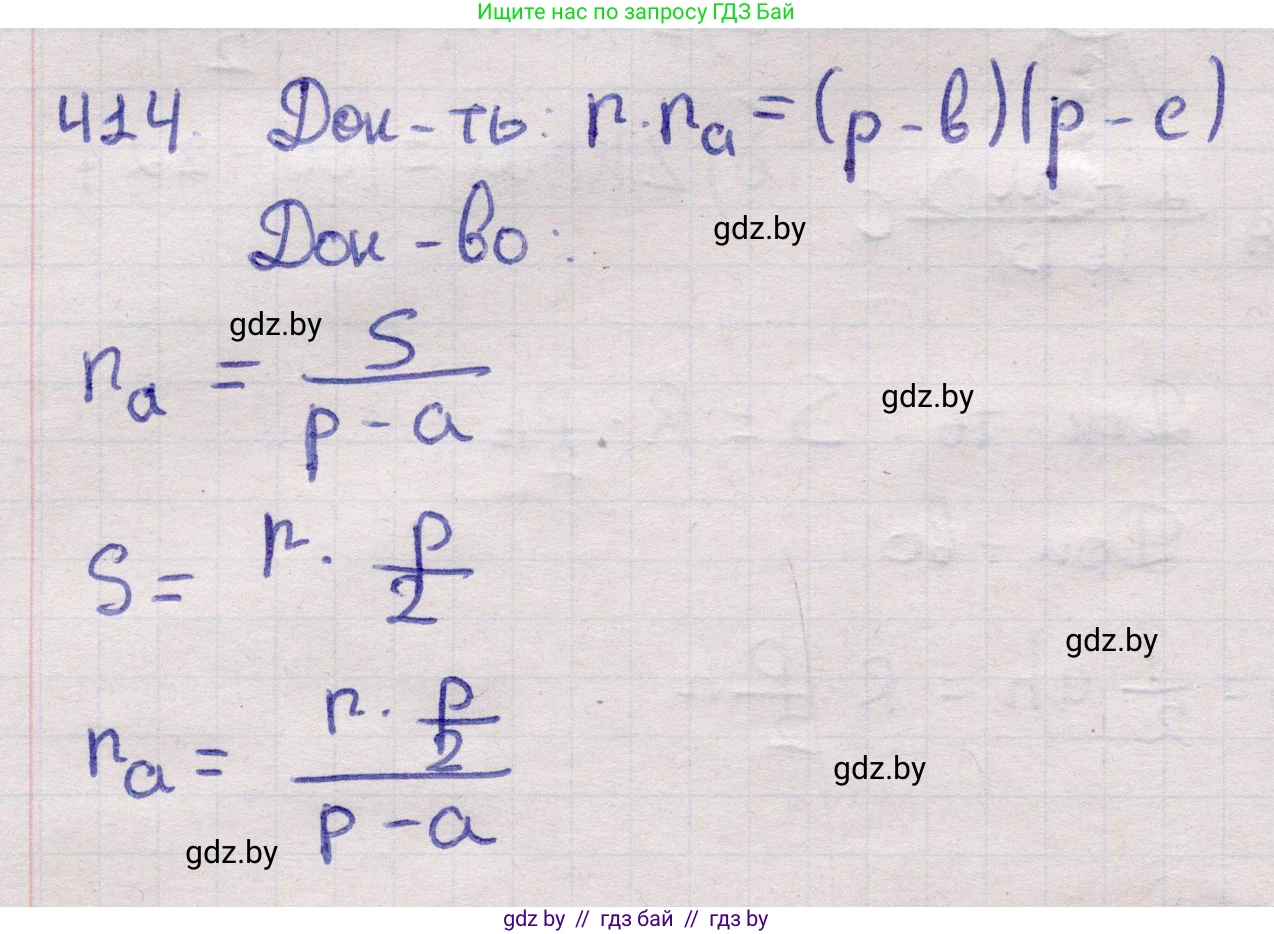 Ищите нас по запросу ГДЗ Бай
414. Док-ть: r·rₐ = (p-в)(p-с)
Док-во:
gdz.by
gdz.by
rₐ = S/(p-a)
gdz.by
S = r·p/2
gdz.by
rₐ = (r·p/2)/(p-a)
gdz.by
gdz.by
gdz by // гдз бай // гдз by